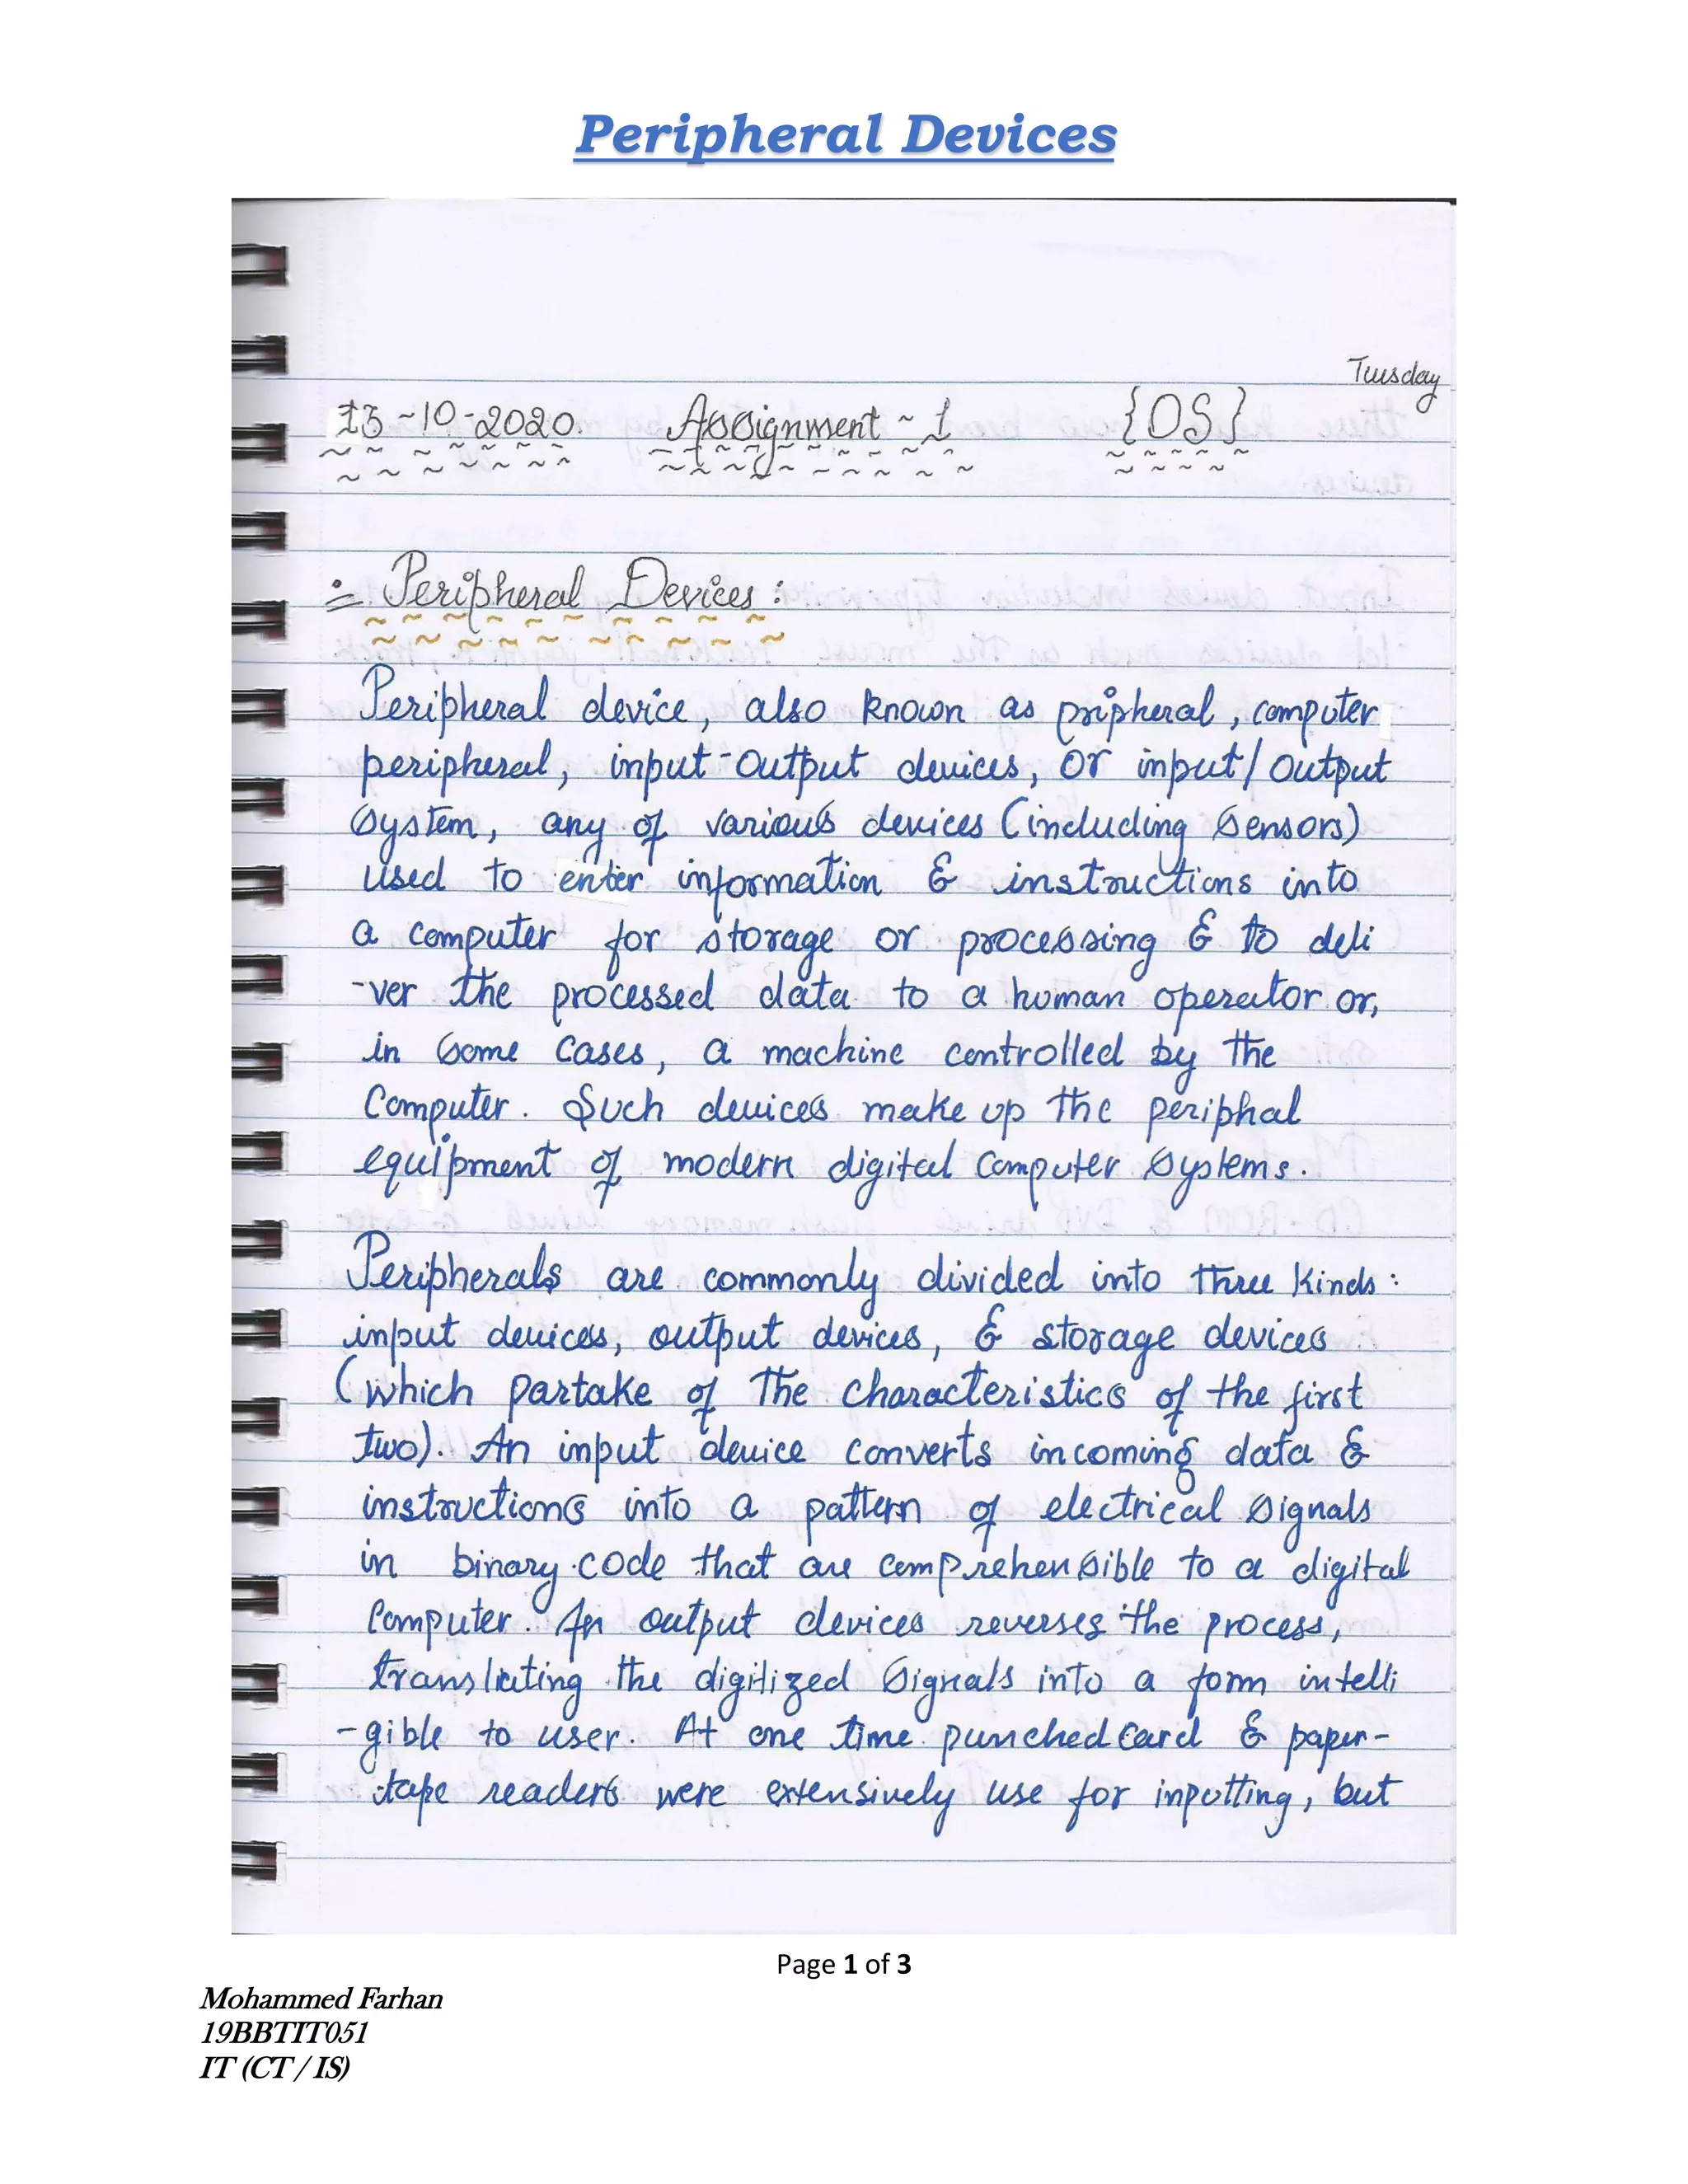 Peripheral Devices
Tuesday
13-10-2020. Assignment - 1 {OS}
Peripheral Devices :
Peripheral device, also known as pripheral, computer
peripheral, input-output devices, or input/output
system, any of various devices (including sensors)
used to enter information & instructions into
a computer for storage or processing & to deli
-ver the processed data to a human operator or,
in some cases, a machine controlled by the
Computer. Such devices make up the periphal
equipment of modern digital computer systems.
Peripherals are commonly divided into three kinds :
input devices, output devices, & storage devices
(which partake of the characteristics of the first
two). An input device converts incoming data &
instructions into a pattern of electrical signals
in binary code that are comprehensible to a digital
Computer. An output devices reverses the process,
translating the digitized signals into a form intelli
-gible to user. At one time punched card & paper-
tape readers were extensively use for inputting, but
Page 1 of 3
Mohammed Farhan
19BBTIT051
IT (CT / IS)